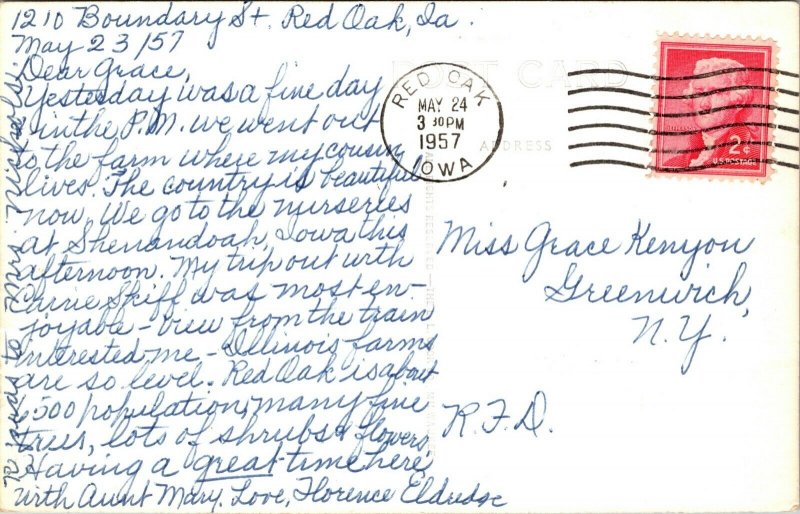 1210 Boundary St. Red Oak, Ia.
May 23/57
Dear Grace,
Yesterday was a fine day
in the P.M. we went out
to the farm where my cousin
lives. The country is beautiful
now. We go to the nurseries
at Shenandoah, Iowa this
afternoon. My trip out with
Carrie Skiff was most en-
joyable - view from the train
interested me - Illinois farms
are so level. Red Oak is about
6500 population, many fine
trees, lots of shrubs & flowers.
Having a great time here
with Aunt Mary. Love, Florence Eldredge
Regards to Mrs. Nichols
POST CARD
ADDRESS
RED OAK
MAY 24
3 30 PM
1957
IOWA
2¢
U.S. POSTAGE
Miss Grace Kenyon
Greenwich,
N.Y.
R.F.D.